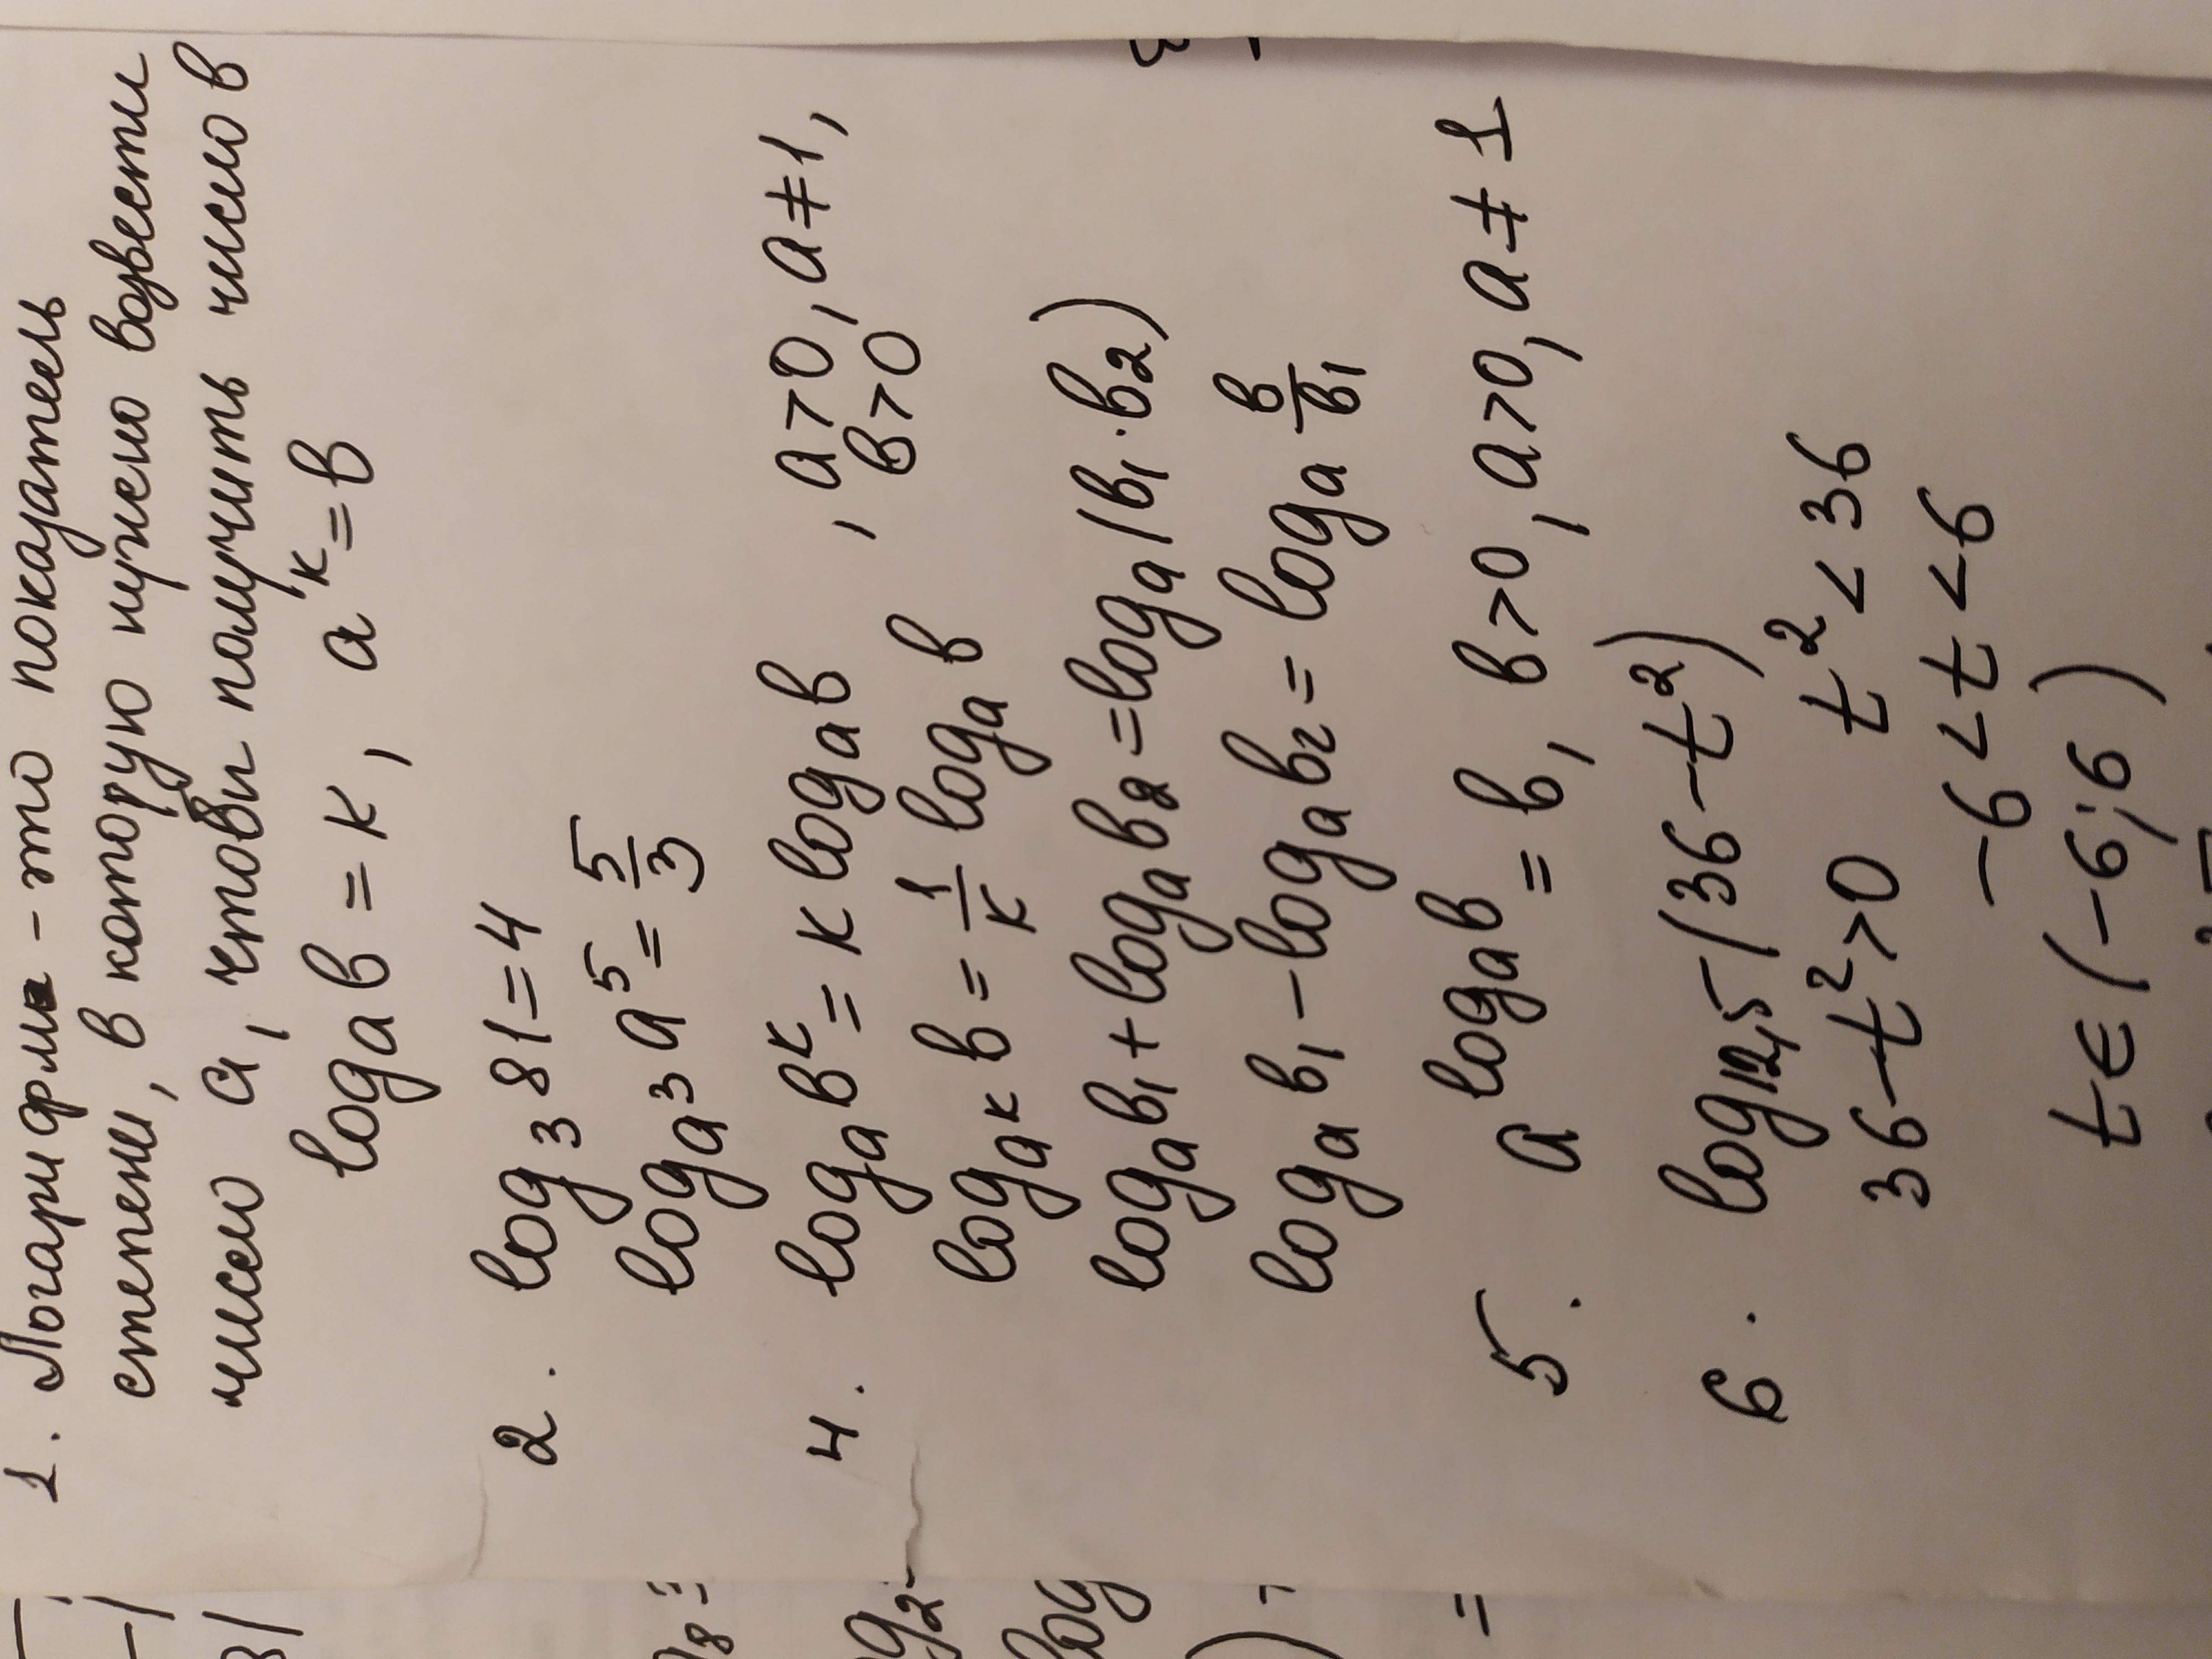 1. Логарифм - это показатель
степени, в которую нужно возвести
число a, чтобы получить число b
log_a b = k, a^k = b
2. log_3 81 = 4
log_{a^3} a^5 = 5/3
4. log_a b^k = k log_a b , a>0, a≠1,
log_{a^k} b = 1/k log_a b , b>0
log_a b_1 + log_a b_2 = log_a (b_1 · b_2)
log_a b_1 - log_a b_2 = log_a b/b_1
5. a^{log_a b} = b, b>0, a>0, a≠1
6. log_{12,5} (36-t^2)
36-t^2>0 t^2<36
-6<t<6
t∈(-6;6)